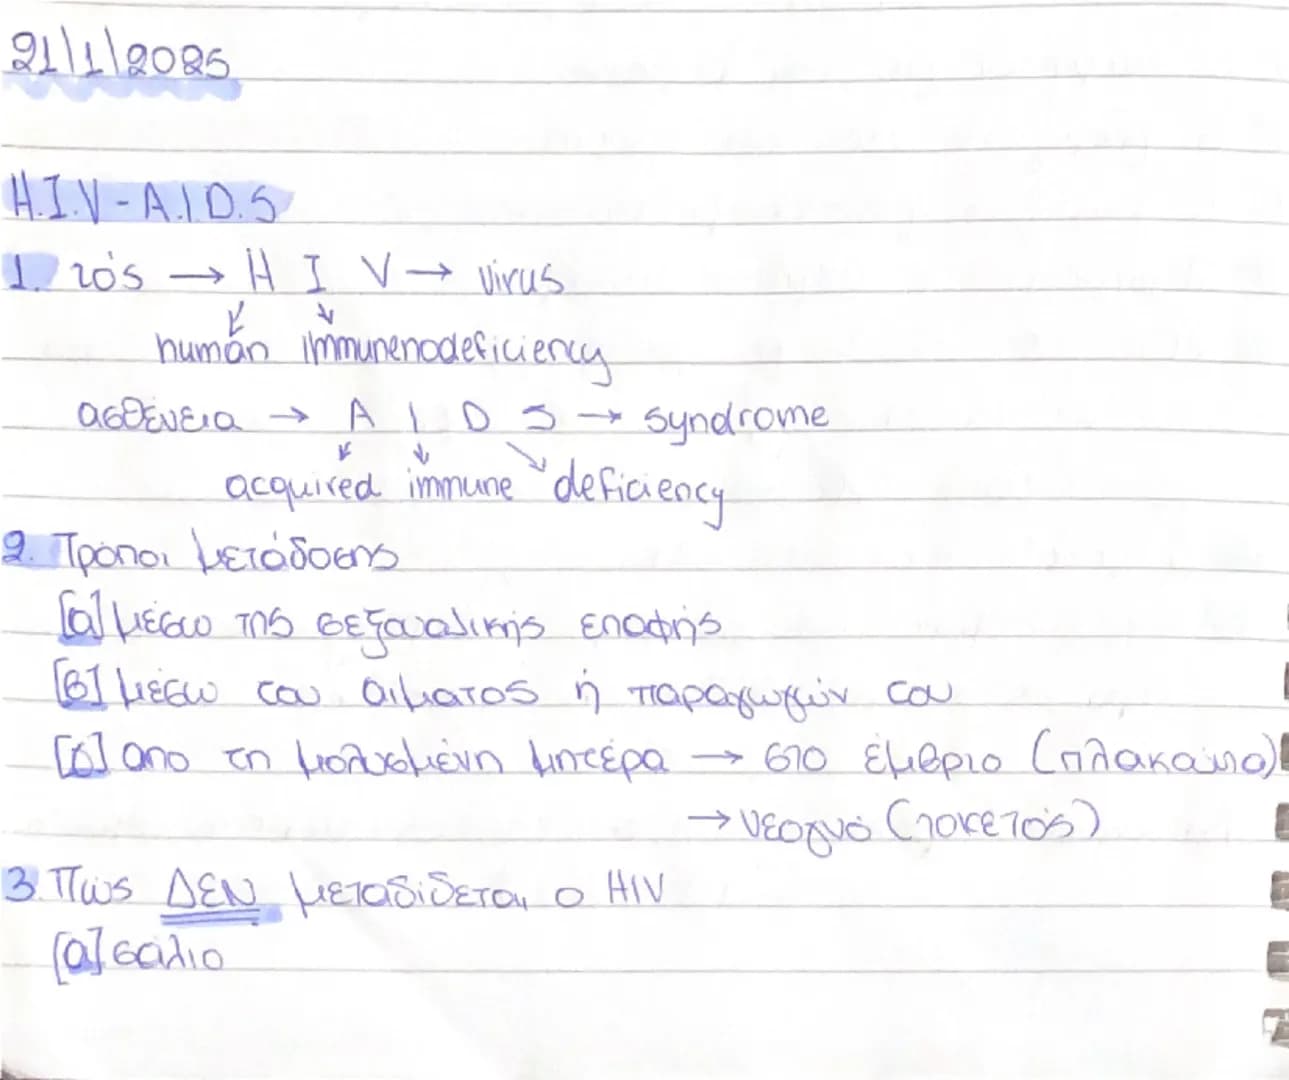 21/1/2025
H.I.V-A.I.D.S
1. ιός → H I V → virus
human immunenodeficiency
ασθένεια → A I D S → syndrome
acquired immune deficiency
2. Τρόποι μετάδοσης
[α] μέσω της σεξουαλικής επαφής
[β] μέσω του αίματος ή παραγώγων του
[γ] από τη μολυσμένη μητέρα → στο έμβριο (πλακούντα)
→ νεογνό (τοκετός)
3. Πως ΔΕΝ μεταδίδεται ο HIV
[α] σάλιο